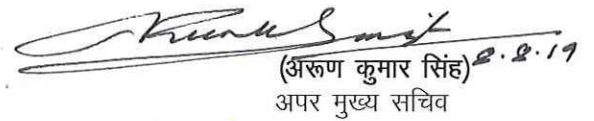 (अरूण कुमार सिंह) 8.8.19
अपर मुख्य सचिव